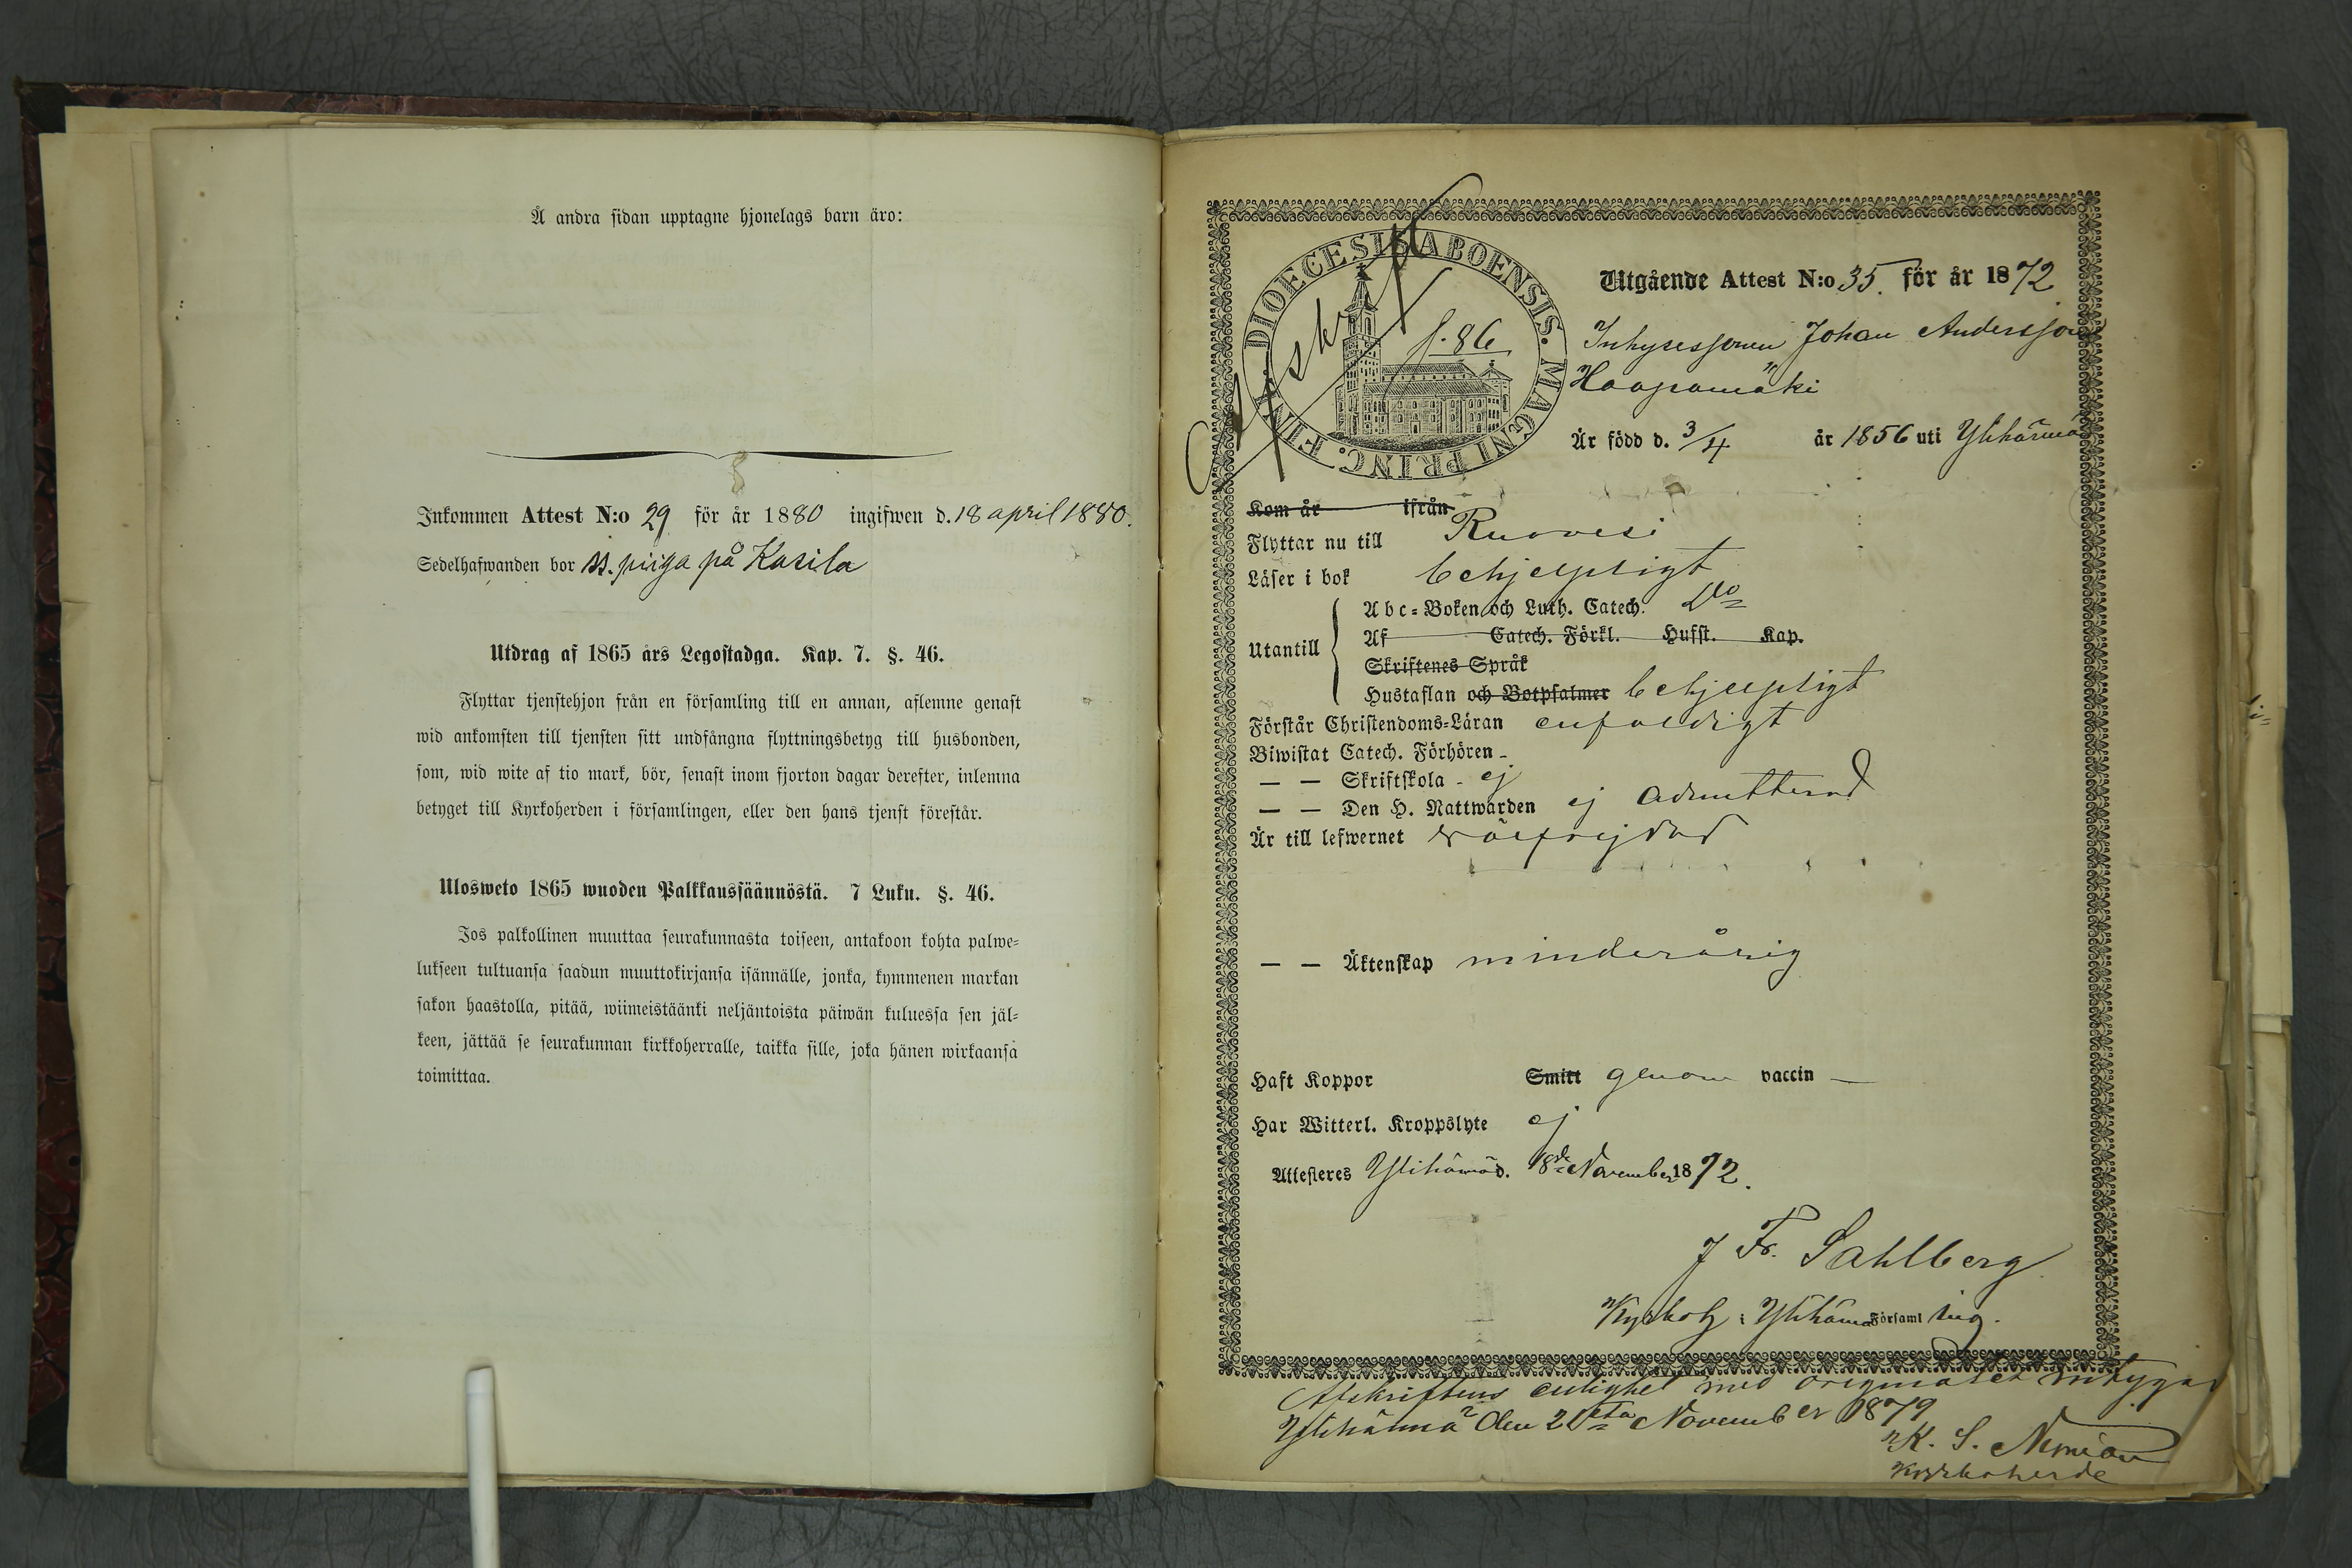 Å andra sidan upptagne hjonelags barn äro:
Inkommen Attest N:o 29 för år 1880 ingifwen d. 18 april 1880.
Sedelhafwanden bor ss. piiga på Kasila
Utdrag af 1865 års Legostadga. Kap. 7. §. 46.
Flyttar tjenstehjon från en församling till en annan, aflemne genast
wid ankomsten till tjensten sitt undfångna flyttningsbetyg till husbonden,
som, wid wite af tio mark, bör, senast inom fjorton dagar derefter, inlemna
betyget till Kyrkoherden i församlingen, eller den hans tjenst förestår.
Ulosweto 1865 wuoden Palkkaussäännöstä. 7 Luku. §. 46.
Jos palkollinen muuttaa seurakunnasta toiseen, antakoon kohta palwe-
lukseen tultuansa saadun muuttokirjansa isännälle, jonka, kymmenen markan
sakon haastolla, pitää, wiimeistäänki neljäntoista päiwän kuluessa sen jäl-
keen, jättää se seurakunnan kirkkoherralle, taikka sille, joka hänen wirkaansa
toimittaa.
DIOECESIS ABOENSIS. MAGNI PRINC. FINL.
Afskrift
f. 86
Utgående Attest N:o 35. för år 1872
Inhysessonen Johan Andersson
Haapamäki
Är född d. 3/4 år 1856 uti Ylihärmä
Kom år ifrån
Flyttar nu till Ruovesi
Läser i bok behjelpligt
Utantill
Abc-Boken och Luth. Catech. Do
Af Catech. Förkl. Husst. Kap.
Skriftenes Språk
Hustaflan och Botpsalmer behjelpligt
Förstår Christendoms-Läran enfaldigt
Biwistat Catech. Förhören -
— — Skriftskola - ej
— — Den H. Nattwarden ej admitterad
Är till lefwernet wälfrejdad
— — Äktenskap minderårig
Haft Koppor Smitt genom vaccin —
Har Witterl. Kroppslyte ej
Attesteres Ylihärmä d. 18de November 1872.
J Fr. Sahlberg
Kyrkoh i Ylihärmä Församl ing.
Afskriftens enlighet med originalet intygar
Ylihärmä den 21sta November 1879
K. S.
Kyrkoherde